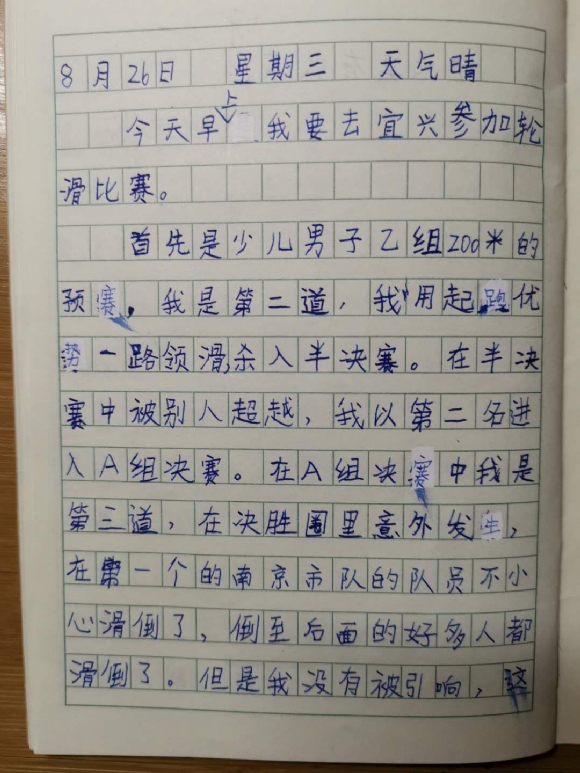 8月26日 星期三 天气晴
今天早上我要去宜兴参加轮
滑比赛。
首先是少儿男子乙组200米的
预赛。我是第二道，我用起跑优
势一路领滑,杀入半决赛。在半决
赛中被别人超越，我以第二名进
入A组决赛。在A组决赛中我是
第三道，在决胜圈里意外发生，
在第一个的南京市队的队员不小
心滑倒了，倒至后面的好多人都
滑倒了。但是我没有被引响，这